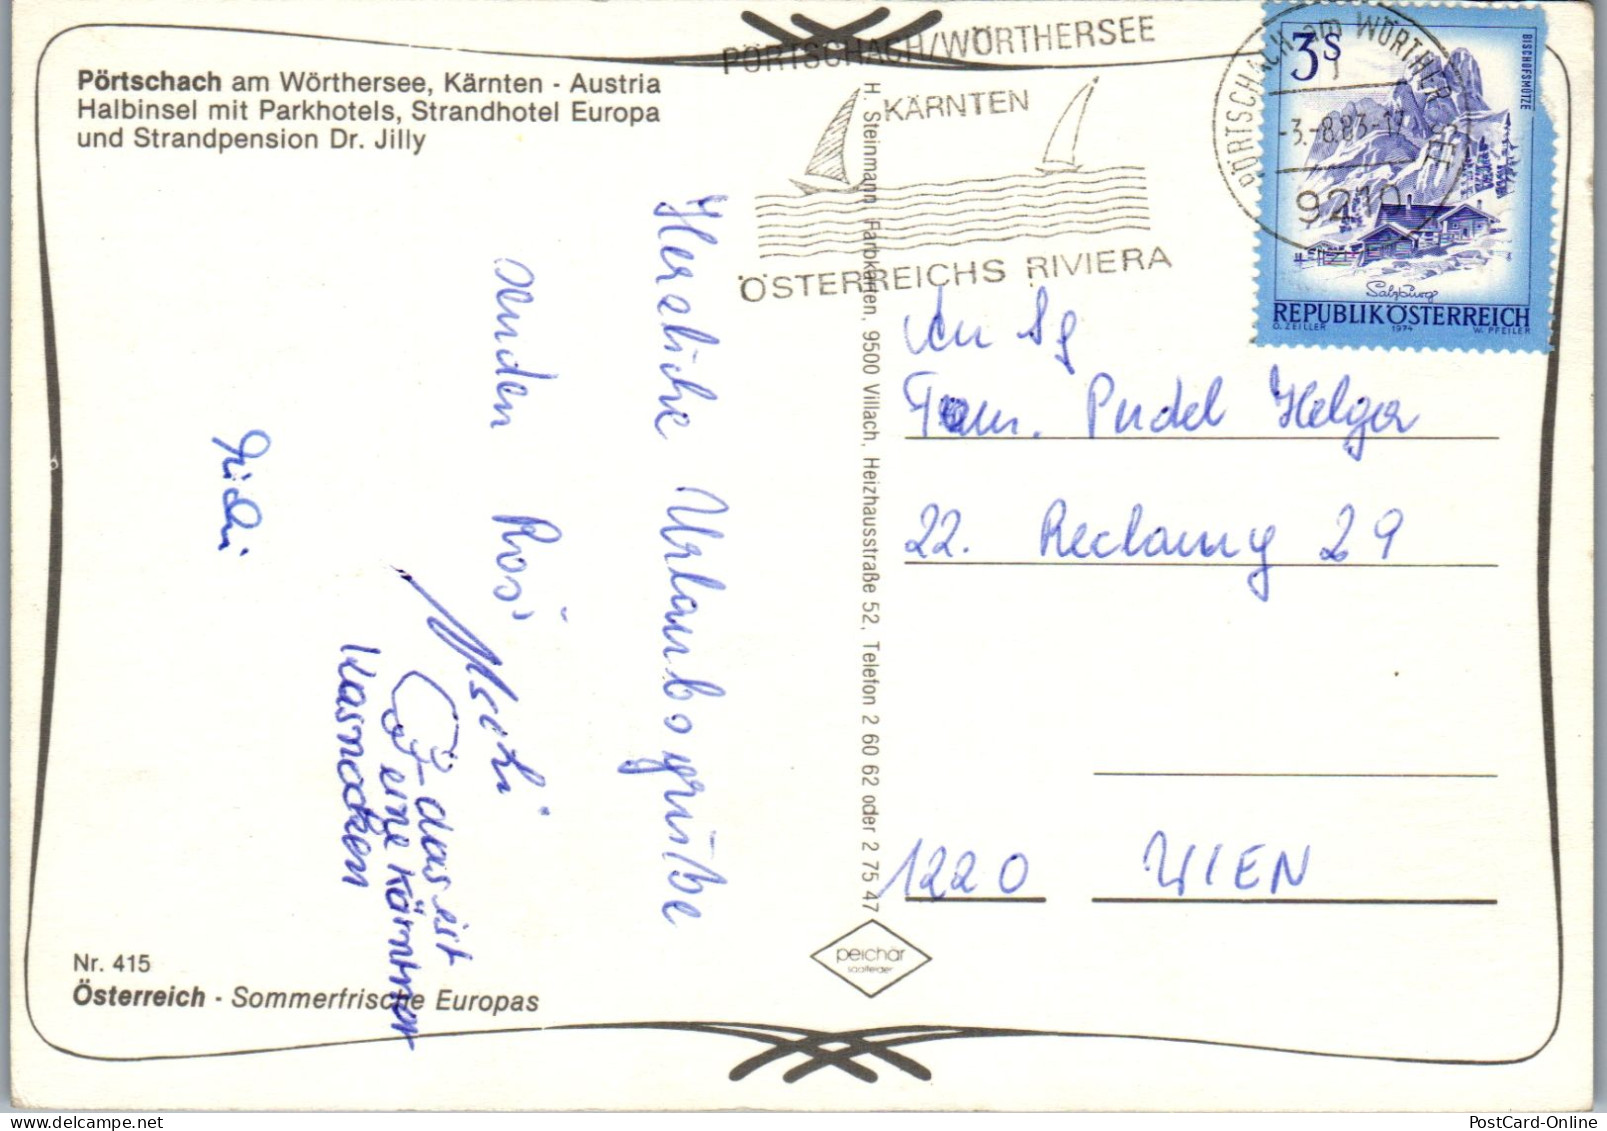 Pörtschach am Wörthersee, Kärnten - Austria
Halbinsel mit Parkhotels, Strandhotel Europa
und Strandpension Dr. Jilly
PÖRTSCHACH/WÖRTHERSEE
KÄRNTEN
ÖSTERREICHS RIVIERA
PÖRTSCHACH am WÖRTHER SEE
-3.-8.83-17
9210
3S
BISCHOFSMÜTZE
Salzburg
REPUBLIK ÖSTERREICH
O. ZEILLER 1974 W. PFEILER
Herzliche Urlaubsgrüße
senden Rosi
Michi
das ist
eine Kärntner
Kasnocken
H. Steinmann Farbkarten, 9500 Villach, Heizhausstraße 52, Telefon 2 60 62 oder 2 75 47
An Sg
Fam. Pudel Helga
22. Reclamg 29
1220 WIEN
peichar
saalfelder
Nr. 415
Österreich - Sommerfrische Europas
PostCard-Online